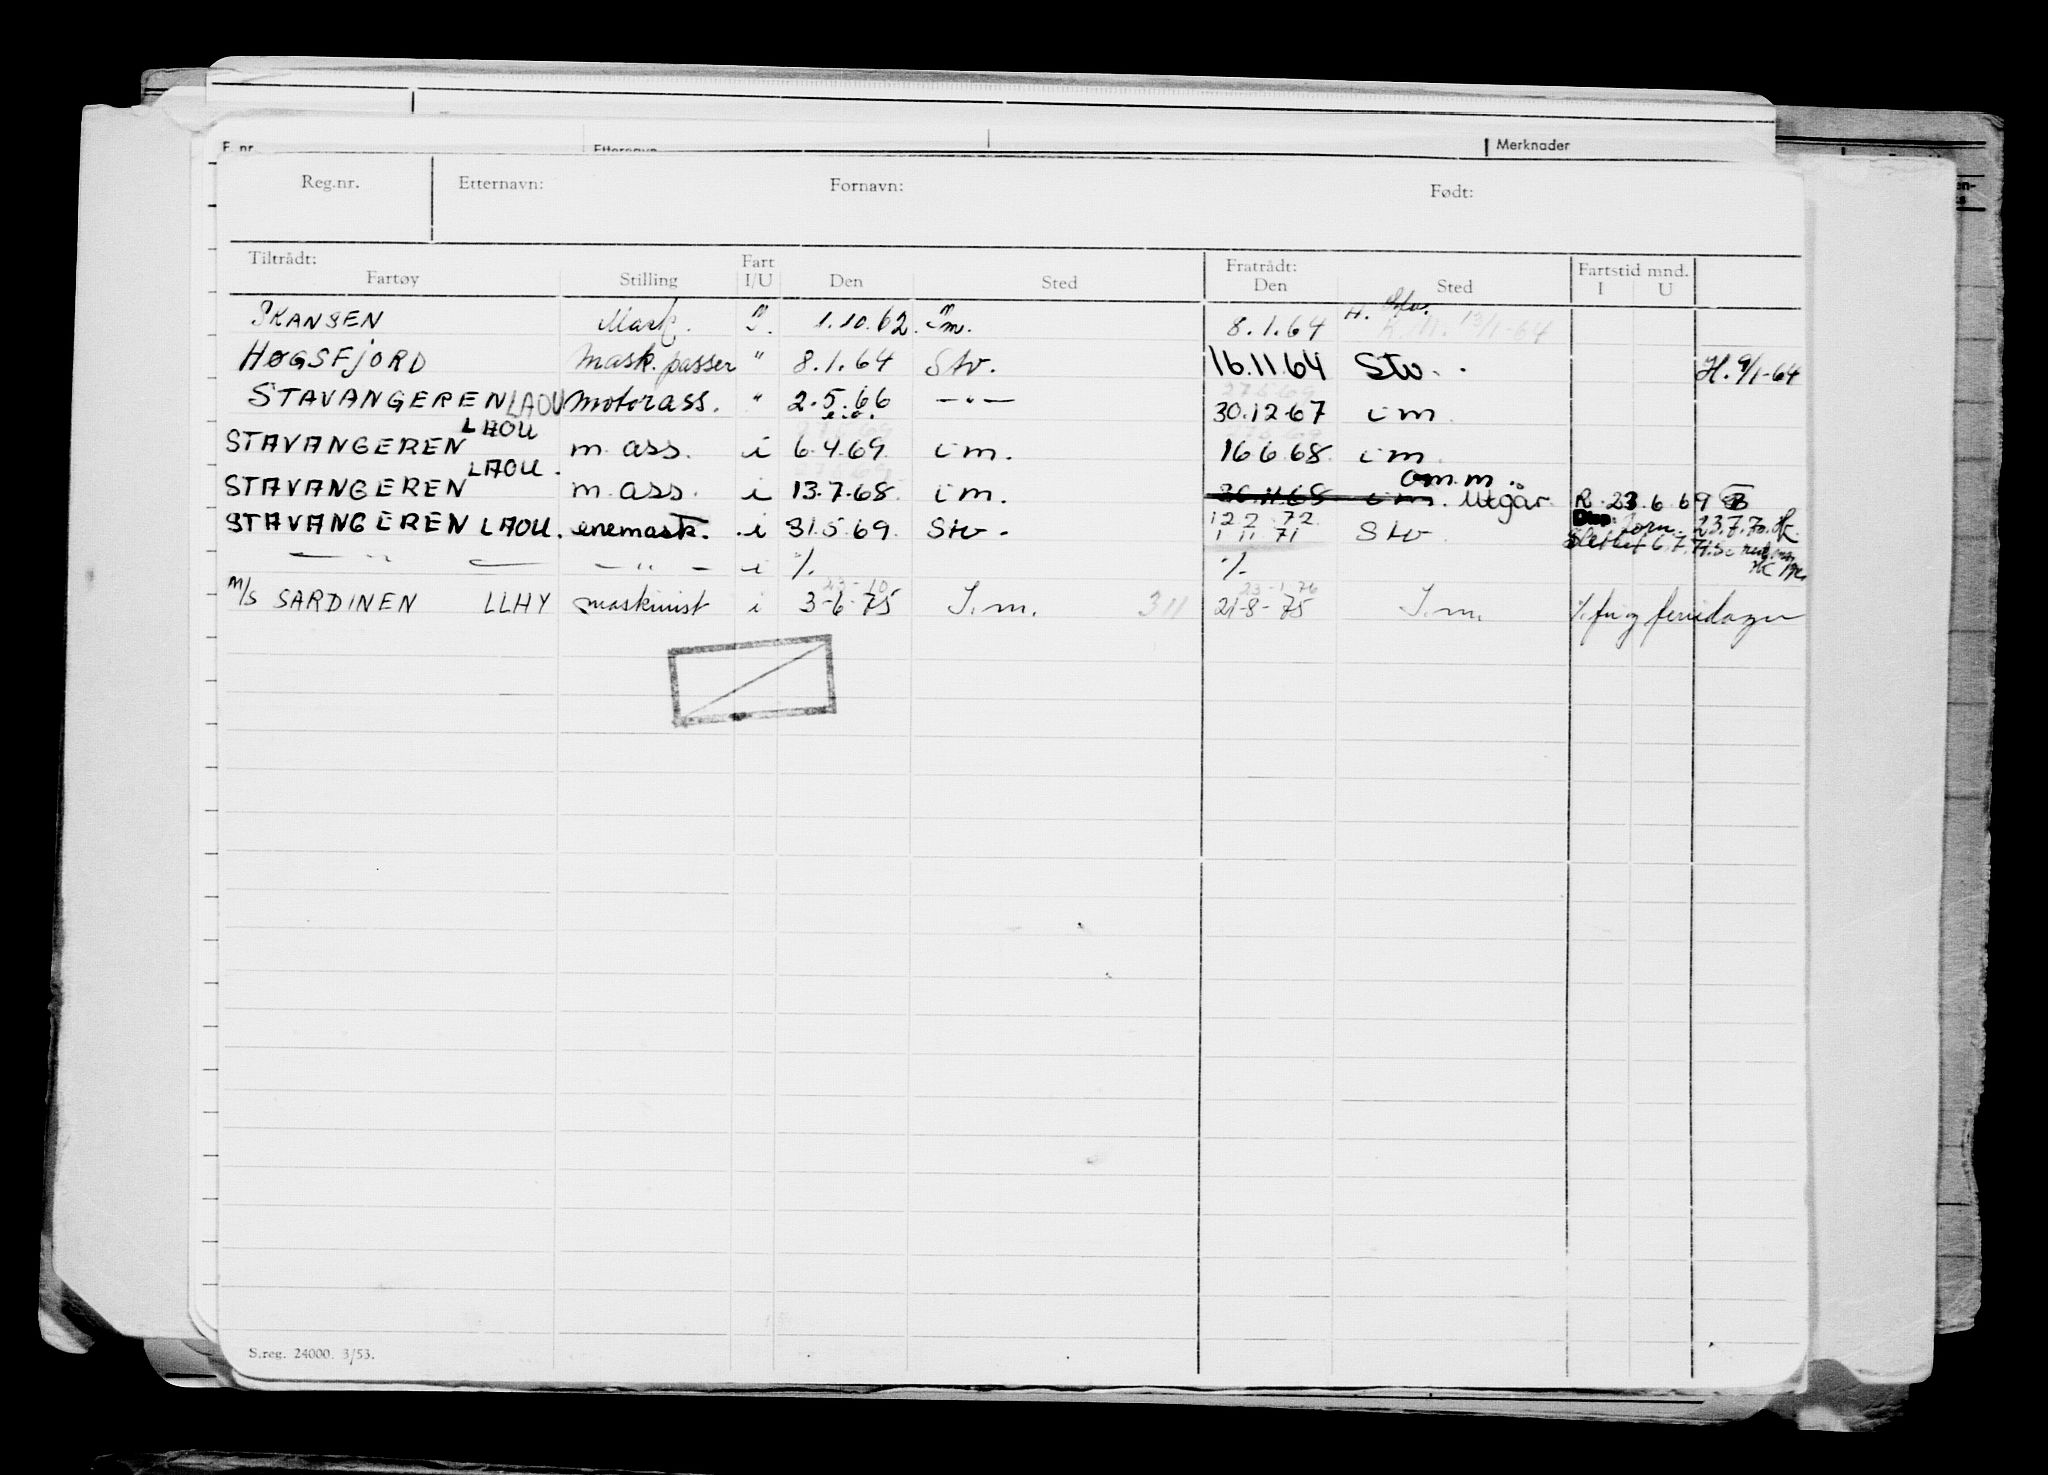 Merknader
Reg.nr. Etternavn: Fornavn: Født:
Tiltrådt: Fart Fratrådt: Fartstid mnd.
Fartøy Stilling I/U Den Sted Den Sted I U
SKANSEN Mask. I. 1.10.62. i m. 8.1.64 H. Stv. K.M. 13/1-64
HØGSFJORD Mask. passer " 8.1.64 Stv. 16.11.64 Stv. H. 9/1-64
STAVANGEREN LAOU motorass. " 2.5.66 — " — 30.12.67 i m
STAVANGEREN LAOU m. ass. i 6.4.69. i m. 16 6.68. i m
STAVANGEREN LAOU. m. ass. i 13.7.68. i m. 26.11.68 i m. omm. utgår. R. 23.6.69
STAVANGEREN LAOU. enemask. i 31.5.69. Stv. 12 2 72. 1 11 71 Stv. Disp. 23.7.70.
— " — — " — i %. %. Slettet 6.7.71.
M/S SARDINEN LLHY maskinist i 3-6-75 I.m. 311 21-8-75 I.m. %. feriedager
23-10 23-1 76
S.reg. 24000. 3/53.